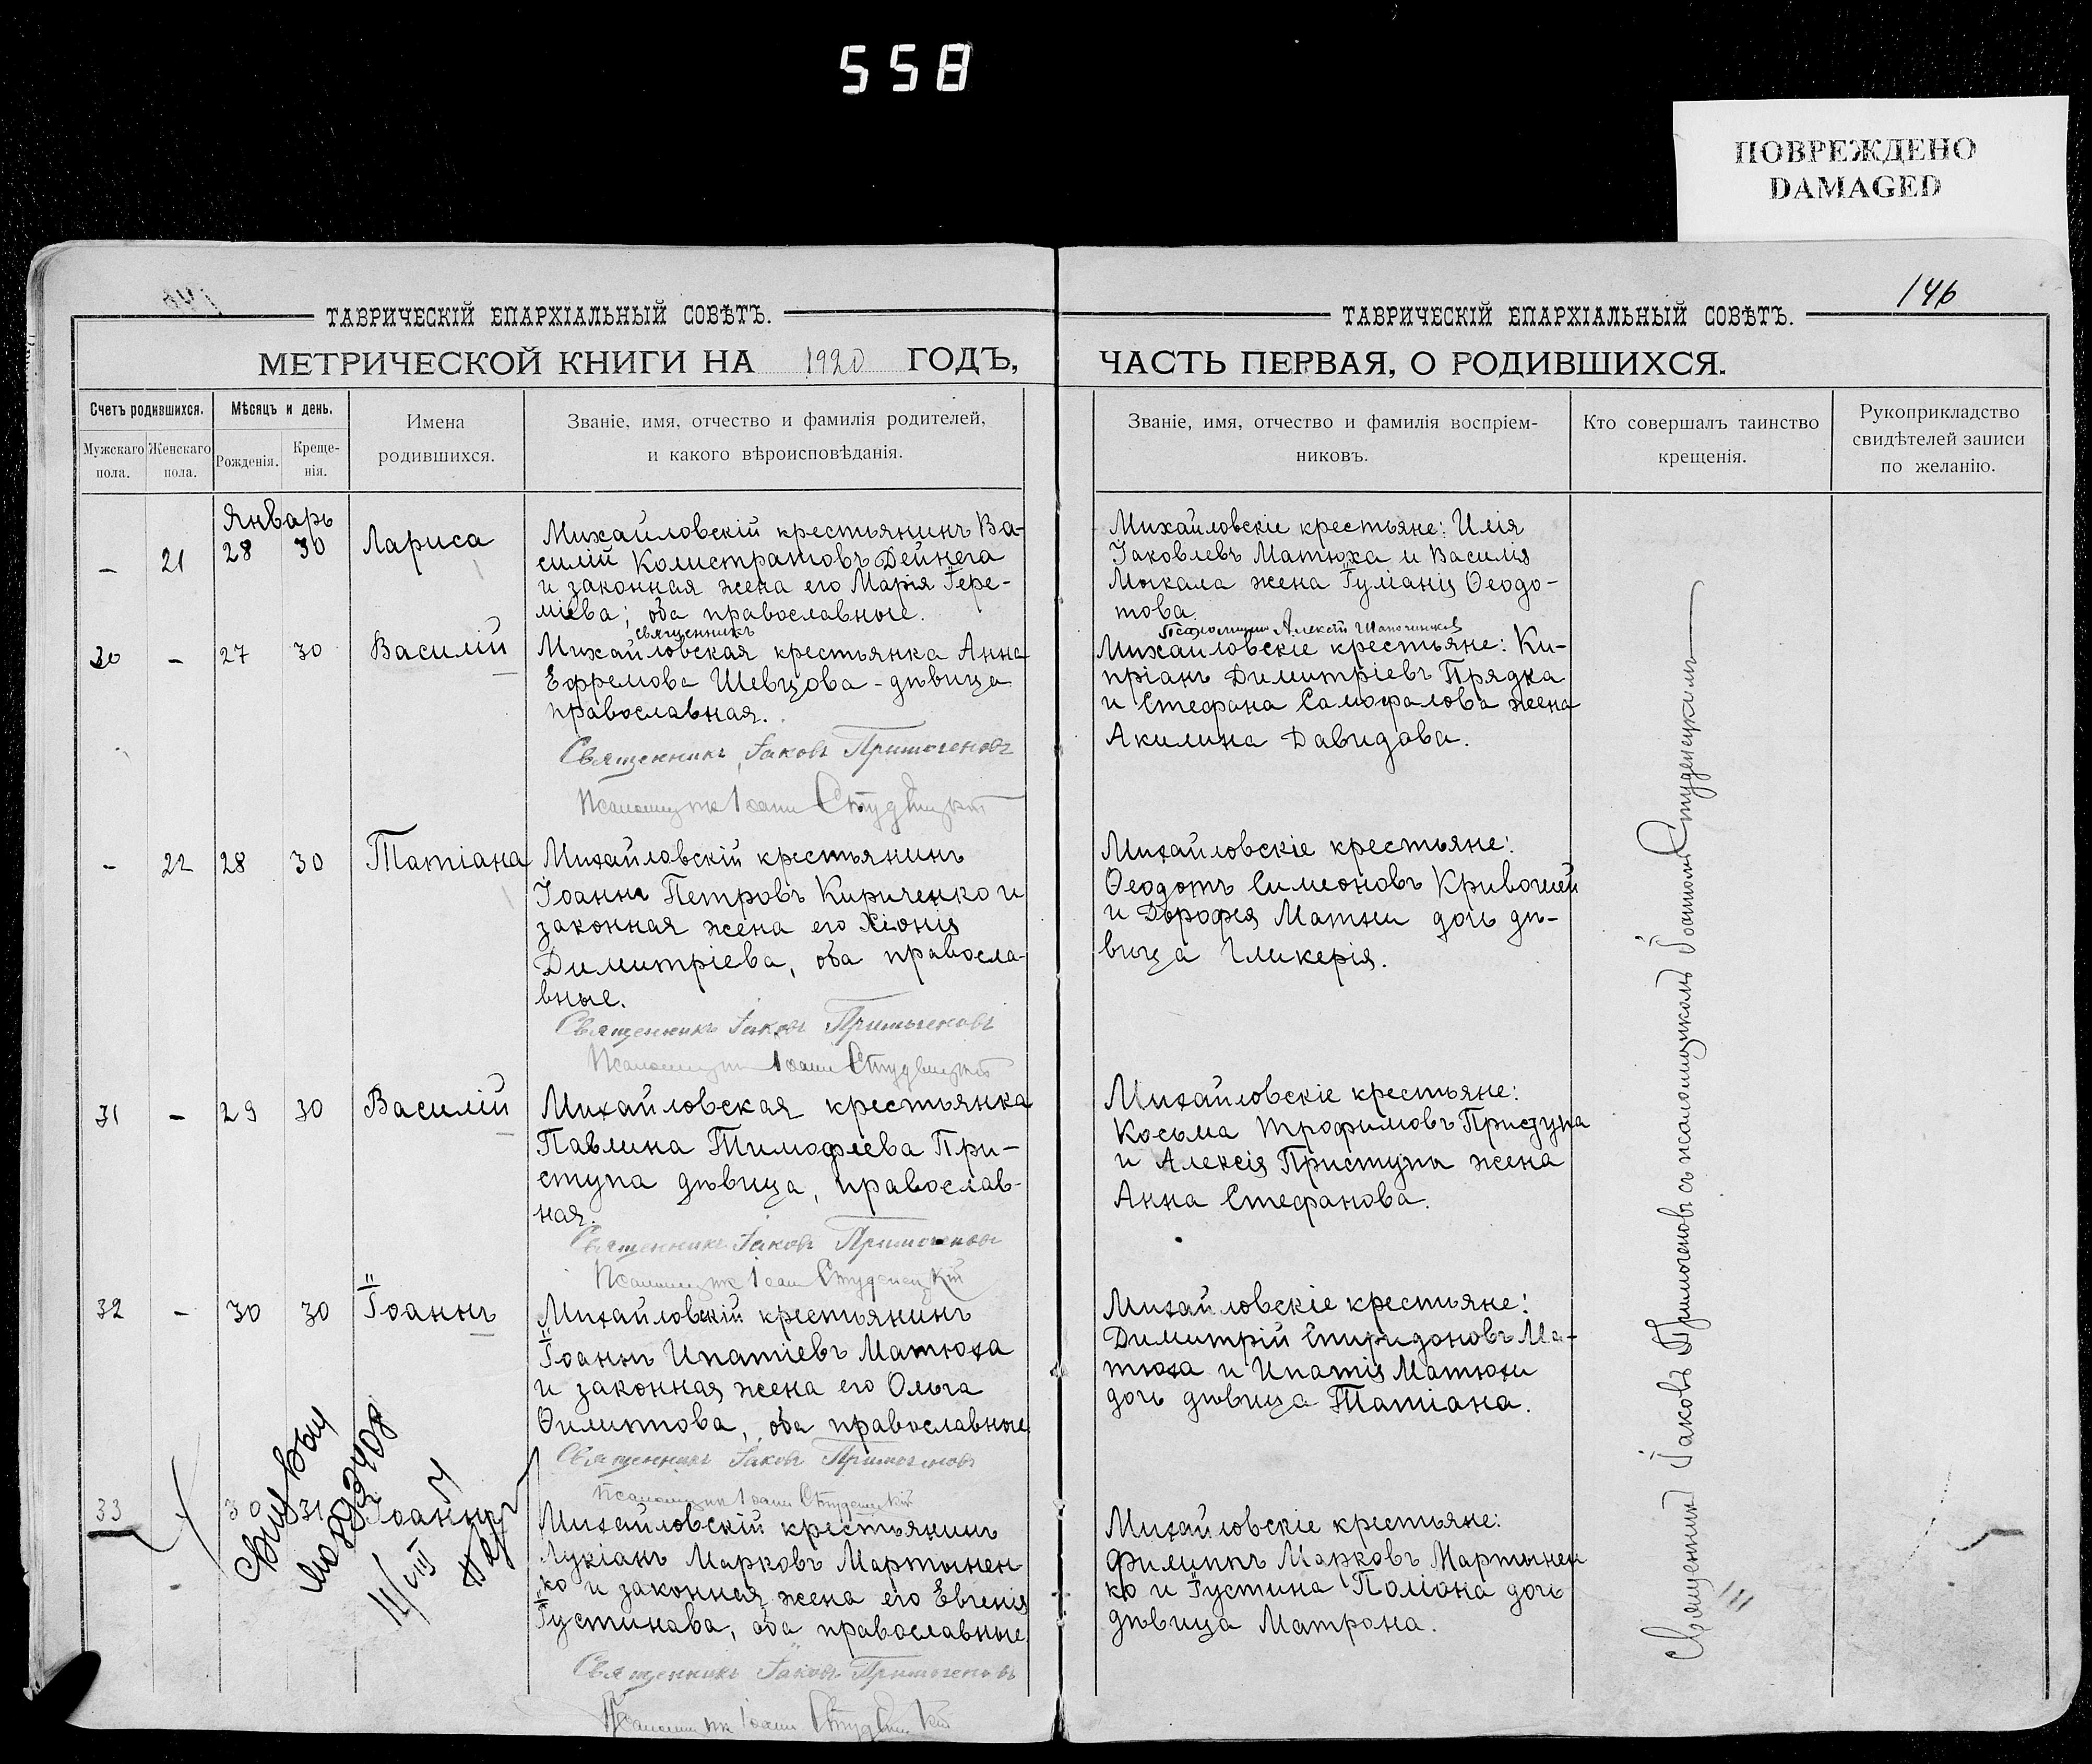 558
ПОВРЕЖДЕНО
DAMAGED
146
ТАВРИЧЕСКІЙ ЕПАРХІАЛЬНЫЙ СОВѢТЪ.
МЕТРИЧЕСКОЙ КНИГИ НА 1920 ГОДЪ,
Счетъ родившихся.
Мужскаго пола.
Женскаго пола.
Мѣсяцъ и день.
Рожденія.
Креще-
нія.
Имена
родившихся.
Званіе, имя, отчество и фамилія родителей,
и какого вѣроисповѣданія.
ТАВРИЧЕСКІЙ ЕПАРХІАЛЬНЫЙ СОВѢТЪ.
ЧАСТЬ ПЕРВАЯ, О РОДИВШИХСЯ.
Званіе, имя, отчество и фамилія воспріем-
никовъ.
Кто совершалъ таинство
крещенія.
Рукоприкладство
свидѣтелей записи
по желанію.
Январь
– 21 28 30 Лариса
Михайловскій крестьянинъ Ва-
силій Колистратовъ Дейнега
и законная жена его Марія Іере-
міева; оба православные.
священникъ
Михайловскіе крестьяне: Илія
Іаковлевъ Матюха и Василія
Мыкала жена Іуліанія Ѳеодо-
това.
Псаломщикъ Алексій
30 – 27 30 Василій
Михайловская крестьянка Анна
Ефремова Шевцова - дѣвица
православная.
Священникъ Іаковъ Примогеновъ
Псаломщикъ Іоаннъ Студенецкій
Михайловскіе крестьяне: Ки-
пріанъ Димитріевъ Прядка
и Стефана Самофалова жена
Акилина Давидова.
– 22 28 30 Татіана
Михайловскій крестьянинъ
Іоаннъ Петровъ Кириченко и
законная жена его Хіонія
Димитріева, оба правосла-
вные.
Священникъ Іаковъ Примогеновъ
Псаломщикъ Іоаннъ Студенецкій
Михайловскіе крестьяне:
Ѳеодотъ Симеоновъ Кривошей
и Дорофея Матни дочь дѣ-
вица Гликерія.
31 – 29 30 Василій
Михайловская крестьянка
Павлина Тимофеева При-
ступа дѣвица, православ-
ная.
Священникъ Іаковъ Примогеновъ
Псаломщикъ Іоаннъ Студенецкій
Михайловскіе крестьяне:
Косьма Трофимовъ Приступа
и Алексія Приступы жена
Анна Стефанова.
32 – 30 30 Іоаннъ
Михайловскій крестьянинъ
Іоаннъ Ипатіевъ Матюха
и законная жена его Ольга
Филиппова, оба православные
Священникъ Іаковъ Примогеновъ
Псаломщикъ Іоаннъ Студенецкій
Михайловскіе крестьяне:
Димитрій Спиридоновъ Ма-
тюха и Ипатія Матюхи
дочь дѣвица Татіана.
33 30 31 Іоаннъ
Михайловскій крестьянинъ
Лукіанъ Марковъ Мартынен
ко и законная жена его Евгенія
Іустинова, оба православные
Священникъ Іаковъ Примогеновъ
Псаломщикъ Іоаннъ Студенецкій
Михайловскіе крестьяне:
Филиппъ Марковъ Мартынен
ко и Іустина Поліона дочь
дѣвица Матрона.
Священникъ Іаковъ Примогеновъ съ псаломщикомъ Іоанномъ Студенецкимъ